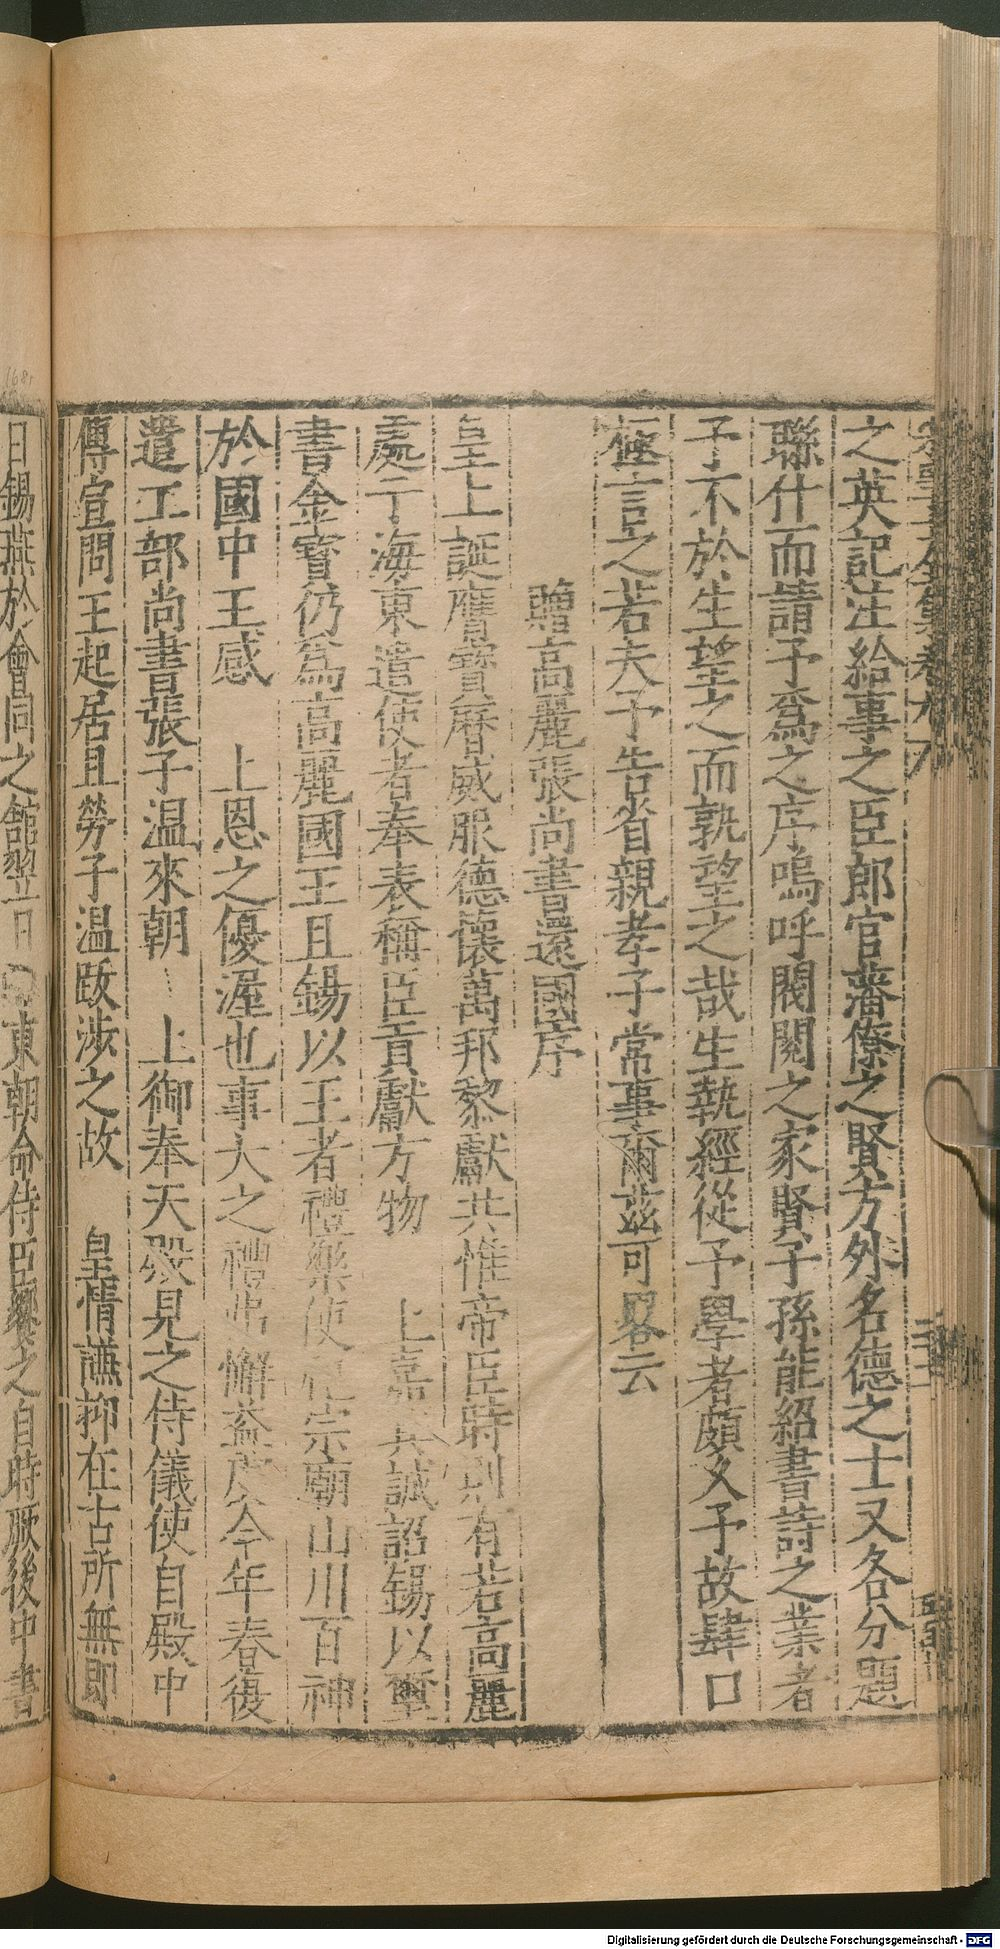 之英記注給事之臣郎官藩僚之賢方外名德之士又各分題
聯什而請予爲之序嗚呼閥閱之家賢子孫能紹書詩之業者
予不於生望之而孰望之哉生執經從予學者頗久予故肆口
極言之若夫予告省親孝子常事爾茲可畧云
贈高麗張尚書還國序
皇上誕膺寶曆威服德懷萬邦黎獻共惟帝臣時則有若高麗
處于海東遣使者奉表稱臣貢獻方物 上嘉其誠詔錫以璽
書金寶仍爲高麗國王且錫以王者禮樂使祀宗廟山川百神
於國中王感 上恩之優渥也事大之禮弗懈益虔今年春復
遣工部尚書張子温來朝 上御奉天殿見之侍儀使自殿中
傳宣問王起居且勞子温跋涉之故 皇情謙抑在古所無即
日錫燕於會同之館翌日 東朝命侍臣饗之自時厥後中書
Digitalisierung gefördert durch die Deutsche Forschungsgemeinschaft - DFG